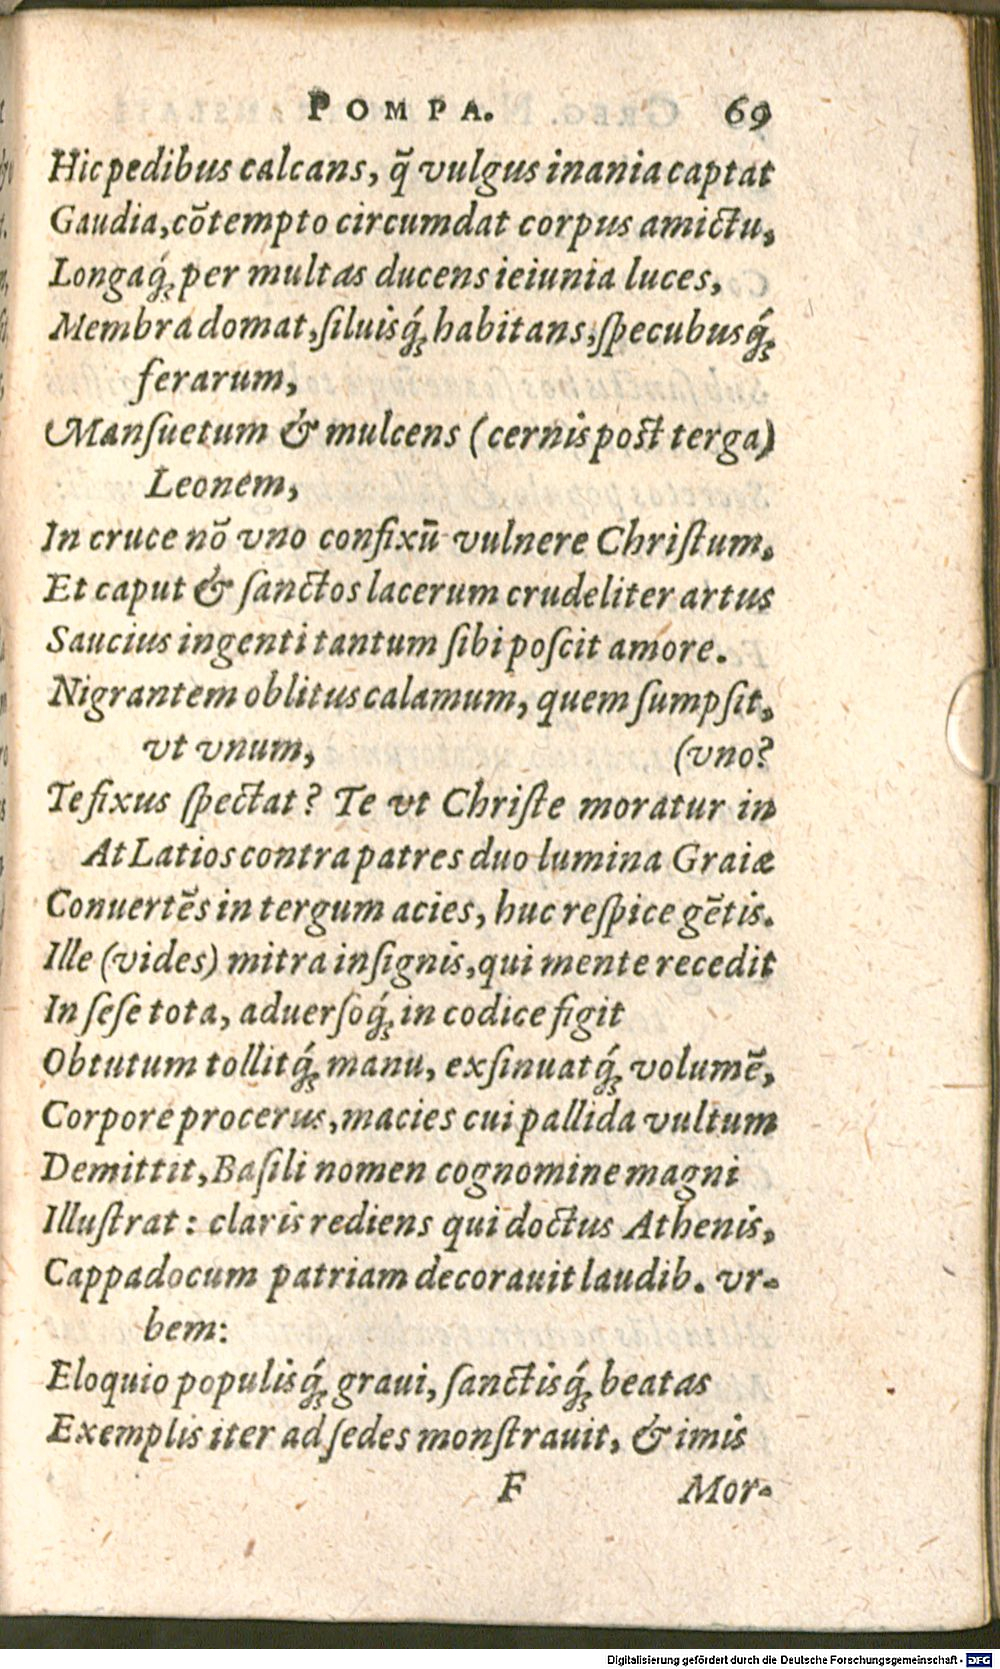 POMPA. 69
Hic pedibus calcans, q̃ vulgus inania captat
Gaudia, cõtempto circumdat corpus amictu,
Longaq́; per multas ducens ieiunia luces,
Membra domat, ſiluisq́; habitans, ſpecubusq́;
ferarum,
Manſuetum & mulcens (cernis post terga)
Leonem,
In cruce nõ vno confixũ vulnere Chriſtum,
Et caput & ſanctos lacerum crudeliter artus
Saucius ingenti tantum ſibi poſcit amore.
Nigrantem oblitus calamum, quem ſumpſit,
vt vnum, (vno?
Te fixus ſpectat? Te vt Chriſte moratur in
At Latios contra patres duo lumina Graiæ
Conuertẽs in tergum acies, huc reſpice gẽtis.
Ille (vides) mitra inſignis, qui mente recedit
In ſeſe tota, aduerſoq́; in codice figit
Obtutum tollitq́; manu, exſinuatq́; volumẽ,
Corpore procerus, macies cui pallida vultum
Demittit, Baſili nomen cognomine magni
Illuſtrat: claris rediens qui doctus Athenis,
Cappadocum patriam decorauit laudib. vr-
bem:
Eloquio populisq́; graui, ſanctisq́; beatas
Exemplis iter ad ſedes monſtrauit, & imis
F Mor-
Digitalisierung gefördert durch die Deutsche Forschungsgemeinschaft - DFG